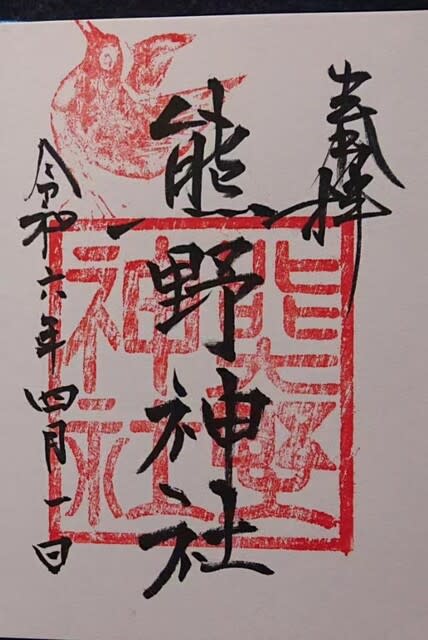 奉拝
熊野神社
令和六年四月一日
熊野
神社